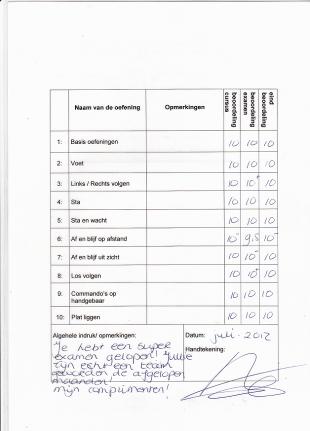 Naam van de oefening Opmerkingen beoordeling cursus beoordeling examen eind beoordeling
1: Basis oefeningen 10 10 10
2: Voet 10 10 10
3: Links / Rechts volgen 10 10+ 10
4: Sta 10 10 10
5: Sta en wacht 10 10 10
6: Af en blijf op afstand 10- 9,5 10-
7: Af en blijf uit zicht 10 10- 10
8: Los volgen 10 10- 10
9: Commando's op handgebaar 10 10 10
10: Plat liggen 10 10 10
Algehele indruk/ opmerkingen:
Je hebt een super
examen gelopen! Jullie
zijn echt een team
geworden de afgelopen
maanden!
Mijn complimenten!
Datum: juli - 2012
Handtekening: